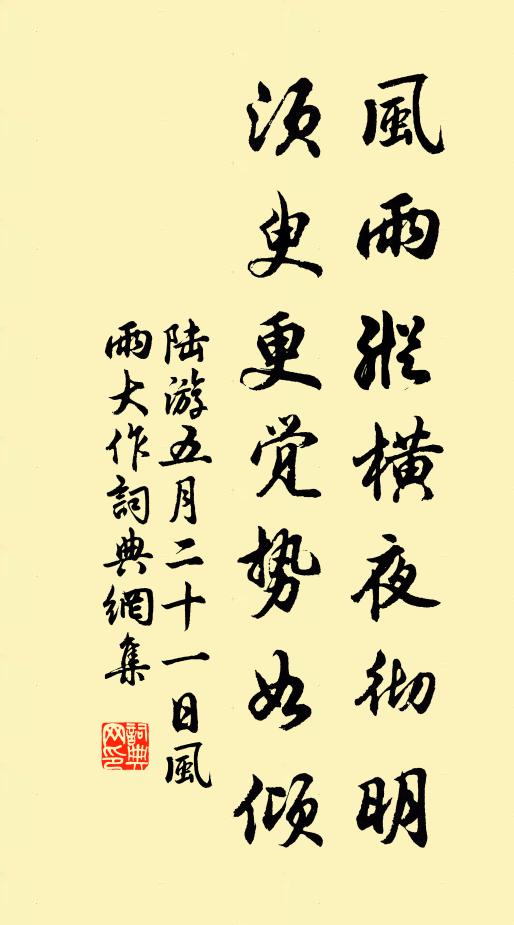 風雨縱橫夜彻明
須臾更觉势如倾
陆游五月二十一日風
雨大作詞典網集
詞典
网印